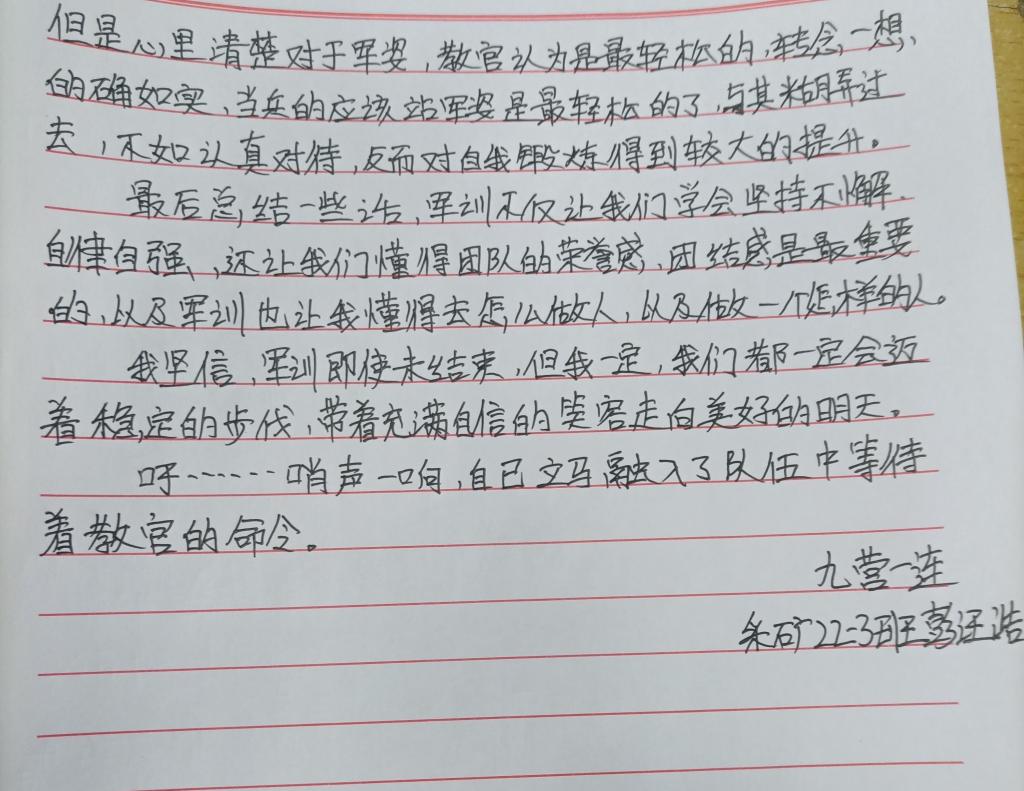 但是心里清楚对于军姿，教官认为是最轻松的，转念一想，
的确如实，当兵的应该站军姿是最轻松的了，与其糊弄过
去，不如认真对待，反而对自我锻炼得到较大的提升。
最后总结一些话，军训不仅让我们学会坚持不懈.
自律自强，还让我们懂得团队的荣誉感，团结感是最重要
的，以及军训也让我懂得去怎么做人，以及做一个怎样的人。
我坚信，军训即使未结束，但我一定，我们都一定会迈
着稳定的步伐，带着充满自信的笑容走向美好的明天。
呼……哨声一响，自己立马融入了队伍中等待
着教官的命令。
九营一连
采矿22-3班 汪浩